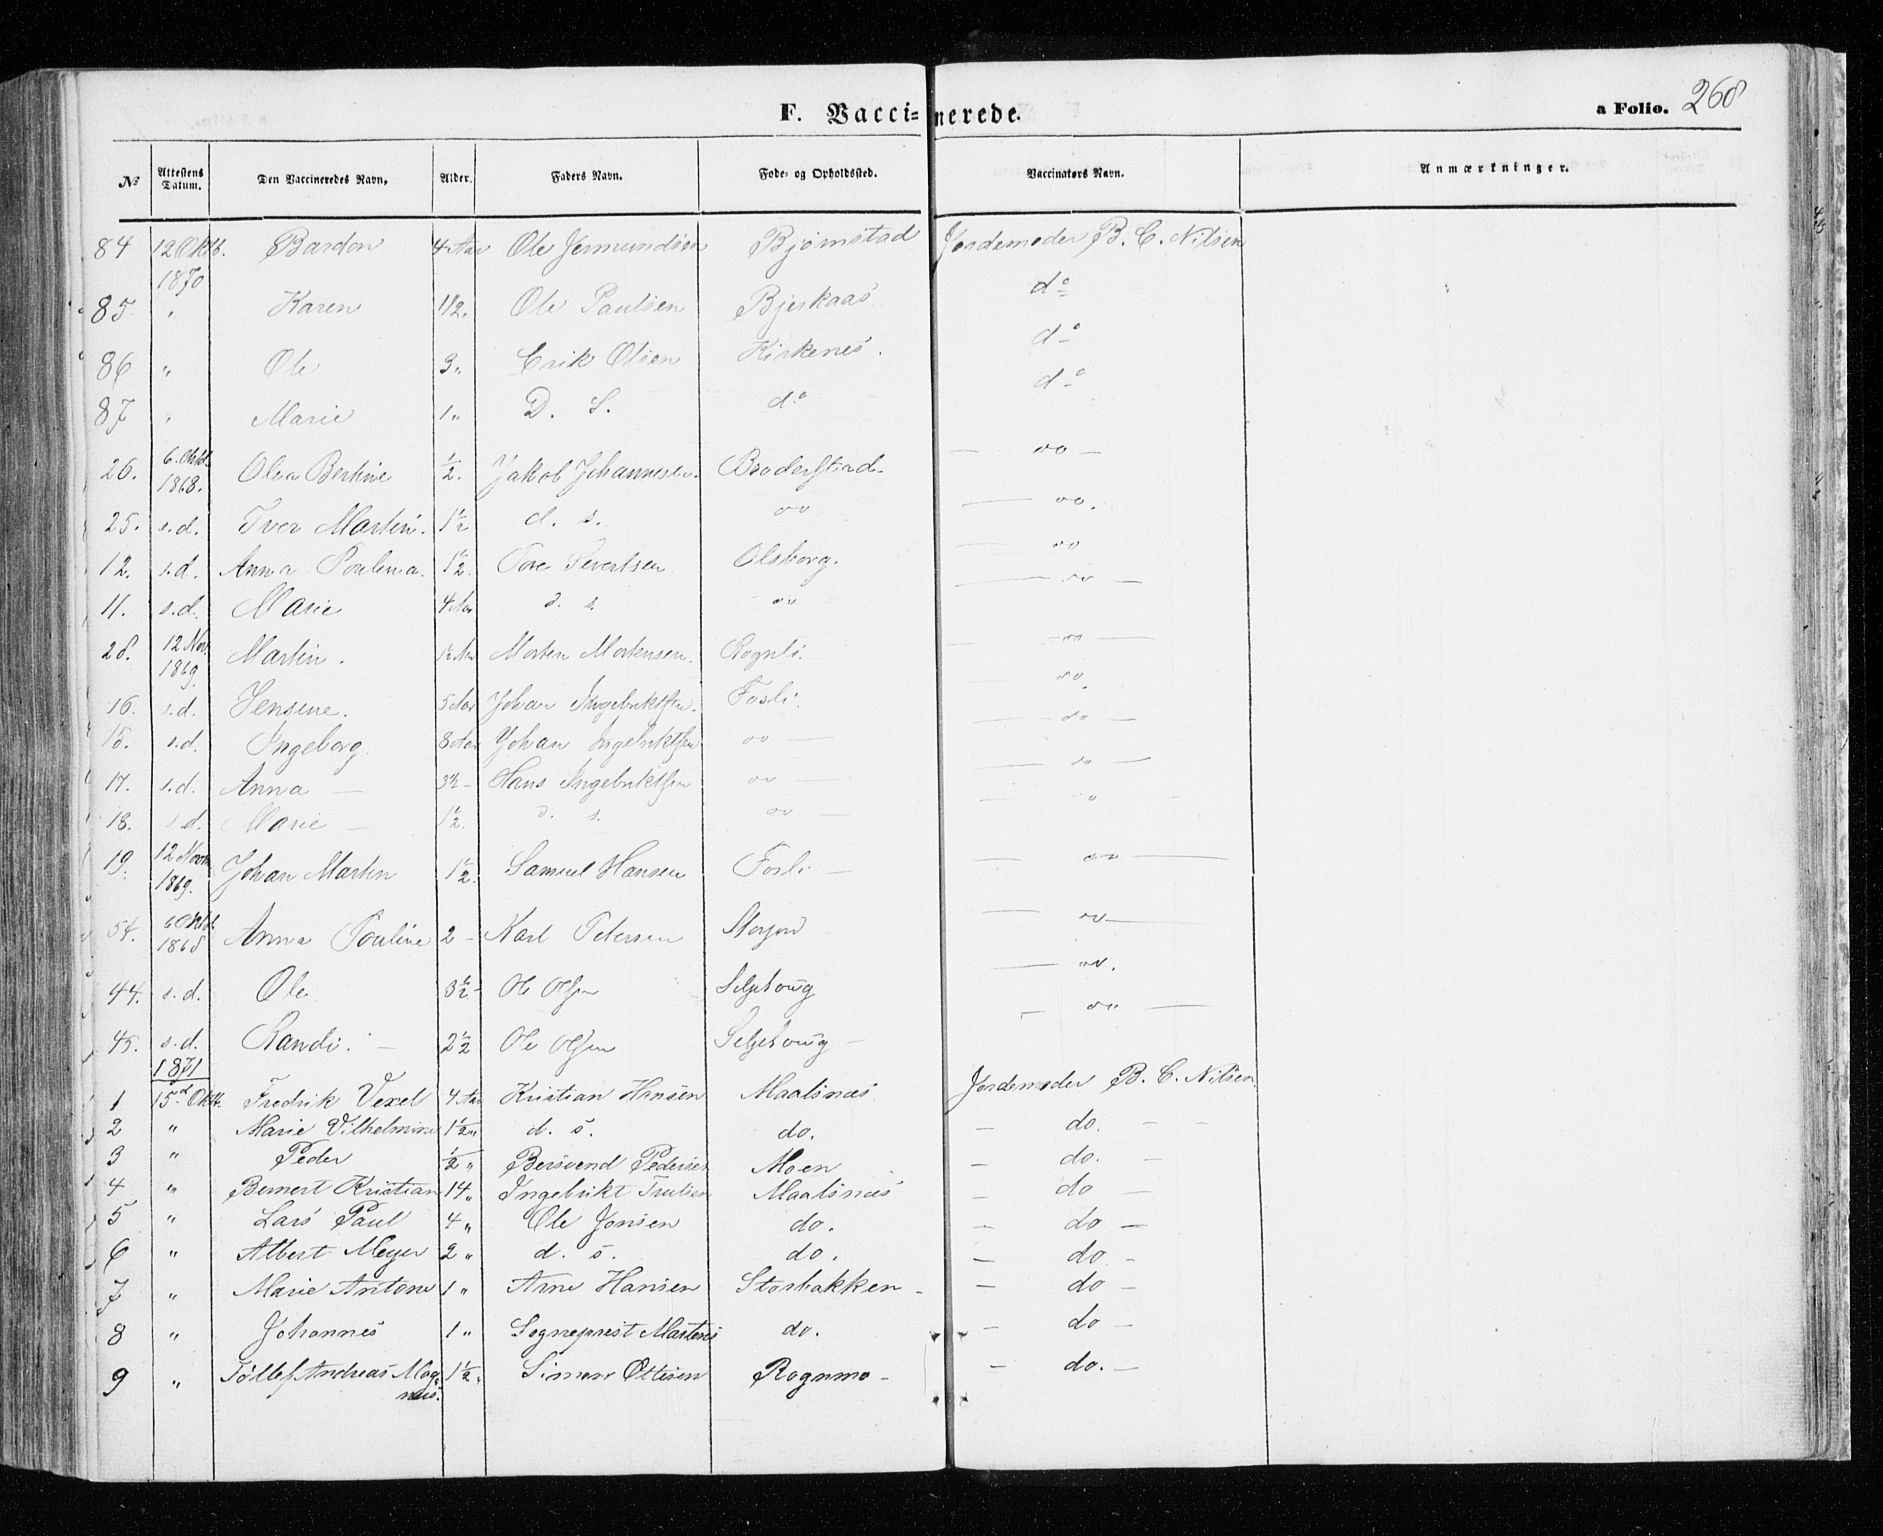 F. Vaccinerede.
a Folio. 268
No Attestens Datum. Den Vaccineredes Navn. Alder. Faders Navn. Føde- og Opholdssted. Vaccinatørs Navn. Anmærkninger.
84 12 Oktb. 1870 Bardon 4 Aar Ole Jermundsen Bjørnstad Jordemoder B. C. Nilsen
85 " Karen 1 1/2 " Ole Paulsen Bjerkaas do
86 " Ole 3 " Erik Olsen Kirkenes. do
87 " Marie 1 " D. S. do do
26. 6. Oktb. 1868. Olea Berthine 1/2. Jakob Johannesen. Broderstad. — do —
25. s.d. Iver Martin. 1 1/2 d. s. do — do.
12. s.d. Anna Poulina. 1 1/2. Tore Sivertsen Olsborg. — do
11. s.d. Marie 4 Aar d. s. do — do —
28. 12 Nov. 1869. Martin. 1 1/2 Aar Morten Mortensen. Rognli. — do —
16. s.d. Jensine. 5 Aar Johan Ingebriktsen. Fosli. — do.
15. s.d. Ingeborg. 8 Aar Johan Ingebriktsen do — — do —
17. s.d. Anna — 3 1/2 — Hans Ingebriktsen do — — do —
18. s.d. Marie — 1 1/2. d. s. do — — " —
19. 12 Novm 1869. Johan Martin 1 1/2. Samuel Hansen Fosli — — do —
54. 6 Oktb. 1868 Anna Pouline 2 — Karl Petersen Storjord — do —
44. s.d. Ole 3 1/2 — Ole Olsen Seljehoug — do.
45. s.d. Randi. — 2 1/2 Ole Olsen Seljehoug — — do —
1871
1 15d Oktb. Fredrik Vexel 4 Aar Kristian Hansen Maalsnæs Jordemoder B. C. Nilsen
2 " Marie Vilhelmine 1 1/2 " d. s. do. — do. — —
3 " Peder 1/2 " Bersvend Pedersen Moen — do. —
4 " Bernert Kristian 14 " Ingebrikt Trulsen Maalsnæs — do —
5 " Lars Paul 4 " Ole Jonsen do. — do —
6 " Albert Meyer 2 " d. s. do. — do —
7 " Marie Antone 1 " Arne Hansen Storbakken — — do —
8 " Johannes 1 " Sogneprest Martens do. — do —
9 " Tøllef Andreas Magnus. 1 1/2 " Simon Ottesen Rognmo — — do. —